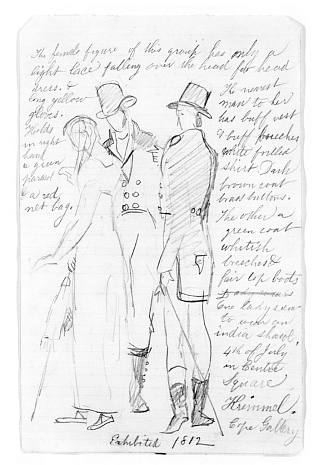 The female figure of this group has only a
light lace falling over the head for head
dress. &
long yellow
gloves.
Holds
in right
hand
a green
parasol
& a red
net bag.
The nearest
man to her
has buff vest
& buff breeches
white frilled
shirt Dark
brown coat
brass buttons.
The other a
green coat
whitish
breeches &
fair top boots
One lady seen
to wear an
india shawl.
4th of July
in Centre
Square
Krimmel.
Cope Gallery
Exhibited 1812